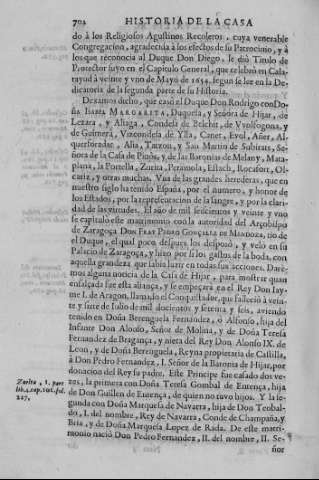 702 HISTORIA DE LA CASA
do à los Religiosos Agustinos Recoletos, cuya venerable
Congregacion, agradecida à los efectos de su Patrocinio, y à
los que reconocia al Duque Don Diego, le diò Titulo de
Protector suyo en el Capitulo General, que celebrò en Cala-
tayud à veinte y vno de Mayo de 1654. segun se lee en la De-
dicatoria de la segunda parte de su Historia.
Dexamos dicho, que casò el Duque Don Rodrigo con Do-
ña ISABEL MARGARITA, Duquesa, y Señora de Hijar, de
Lezera, y Aliaga, Condesa de Belchit, de Vvolfogona, y
de Guimerà, Vincondesa de Ylla, Canet, Evol, Añer, Al-
querforadat, Asia, Taxoni, y San Martin de Subirats, Se-
ñora de la Casa de Pinòs, y de las Baronias de Melany, Mata-
plana, la Portella, Zorita, Peramola, Estach, Rocafort, Ol-
cariz, y otras muchas. Vna de las grandes herederas, que en
nuestro siglo ha tenido España, por el numero, y honor de
los Estados, por la representacion de la sangre, y por la clari-
dad de las virtudes. El año de mil seiscientos y veinte y vno
se capitulò este matrimonio con la autoridad del Arçobispo
de Zaragoça DON FRAY PEDRO GONÇALEZ DE MENDOZA, tio de
el Duque, el qual poco despues los desposò, y velò en su
Palacio de Zaragoça, y hizo por si los gastos de la boda, con
aquella grandeza que sabia luzir en todas sus acciones. Dare-
mos alguna noticia de la Casa de Hijar, para mostrar quan
ensalçada fue esta aliança, y se empeçarà en el Rey Don Iay-
me I. de Aragon, llamado el Conquistador, que falleciò à vein-
te y siete de Iulio de mil docientos y setenta y seis, aviendo
tenido en Doña Berenguela Fernandez, ò Alfonso, hija del
Infante Don Alonso, Señor de Molina, y de Doña Teresa
Fernandez de Bragança, y nieta del Rey Don Alonso IX. de
Leon, y de Doña Berenguela, Reyna propietaria de Castilla,
à Don Pedro Fernandez, I. Señor de la Baronia de Hijar, por
donacion del Rey su padre. Este Principe fue casado dos ve-
zes, la primera con Doña Teresa Gombal de Entença, hija
de Don Guillen de Entença, de quien no tuvo hijos. Y la se-
gunda con Doña Marquesa de Navarra, hija de Don Teobal-
do, I. del nombre, Rey de Navarra, Conde de Champaña, y
Bria, y de Doña Marquesa Lopez de Rada. De este matri-
monio naciò Don Pedro Fernandez, II. del nombre, II. Se-
ñor
Zurita, 1. part.
lib. 4. cap. 101. fol.
227.